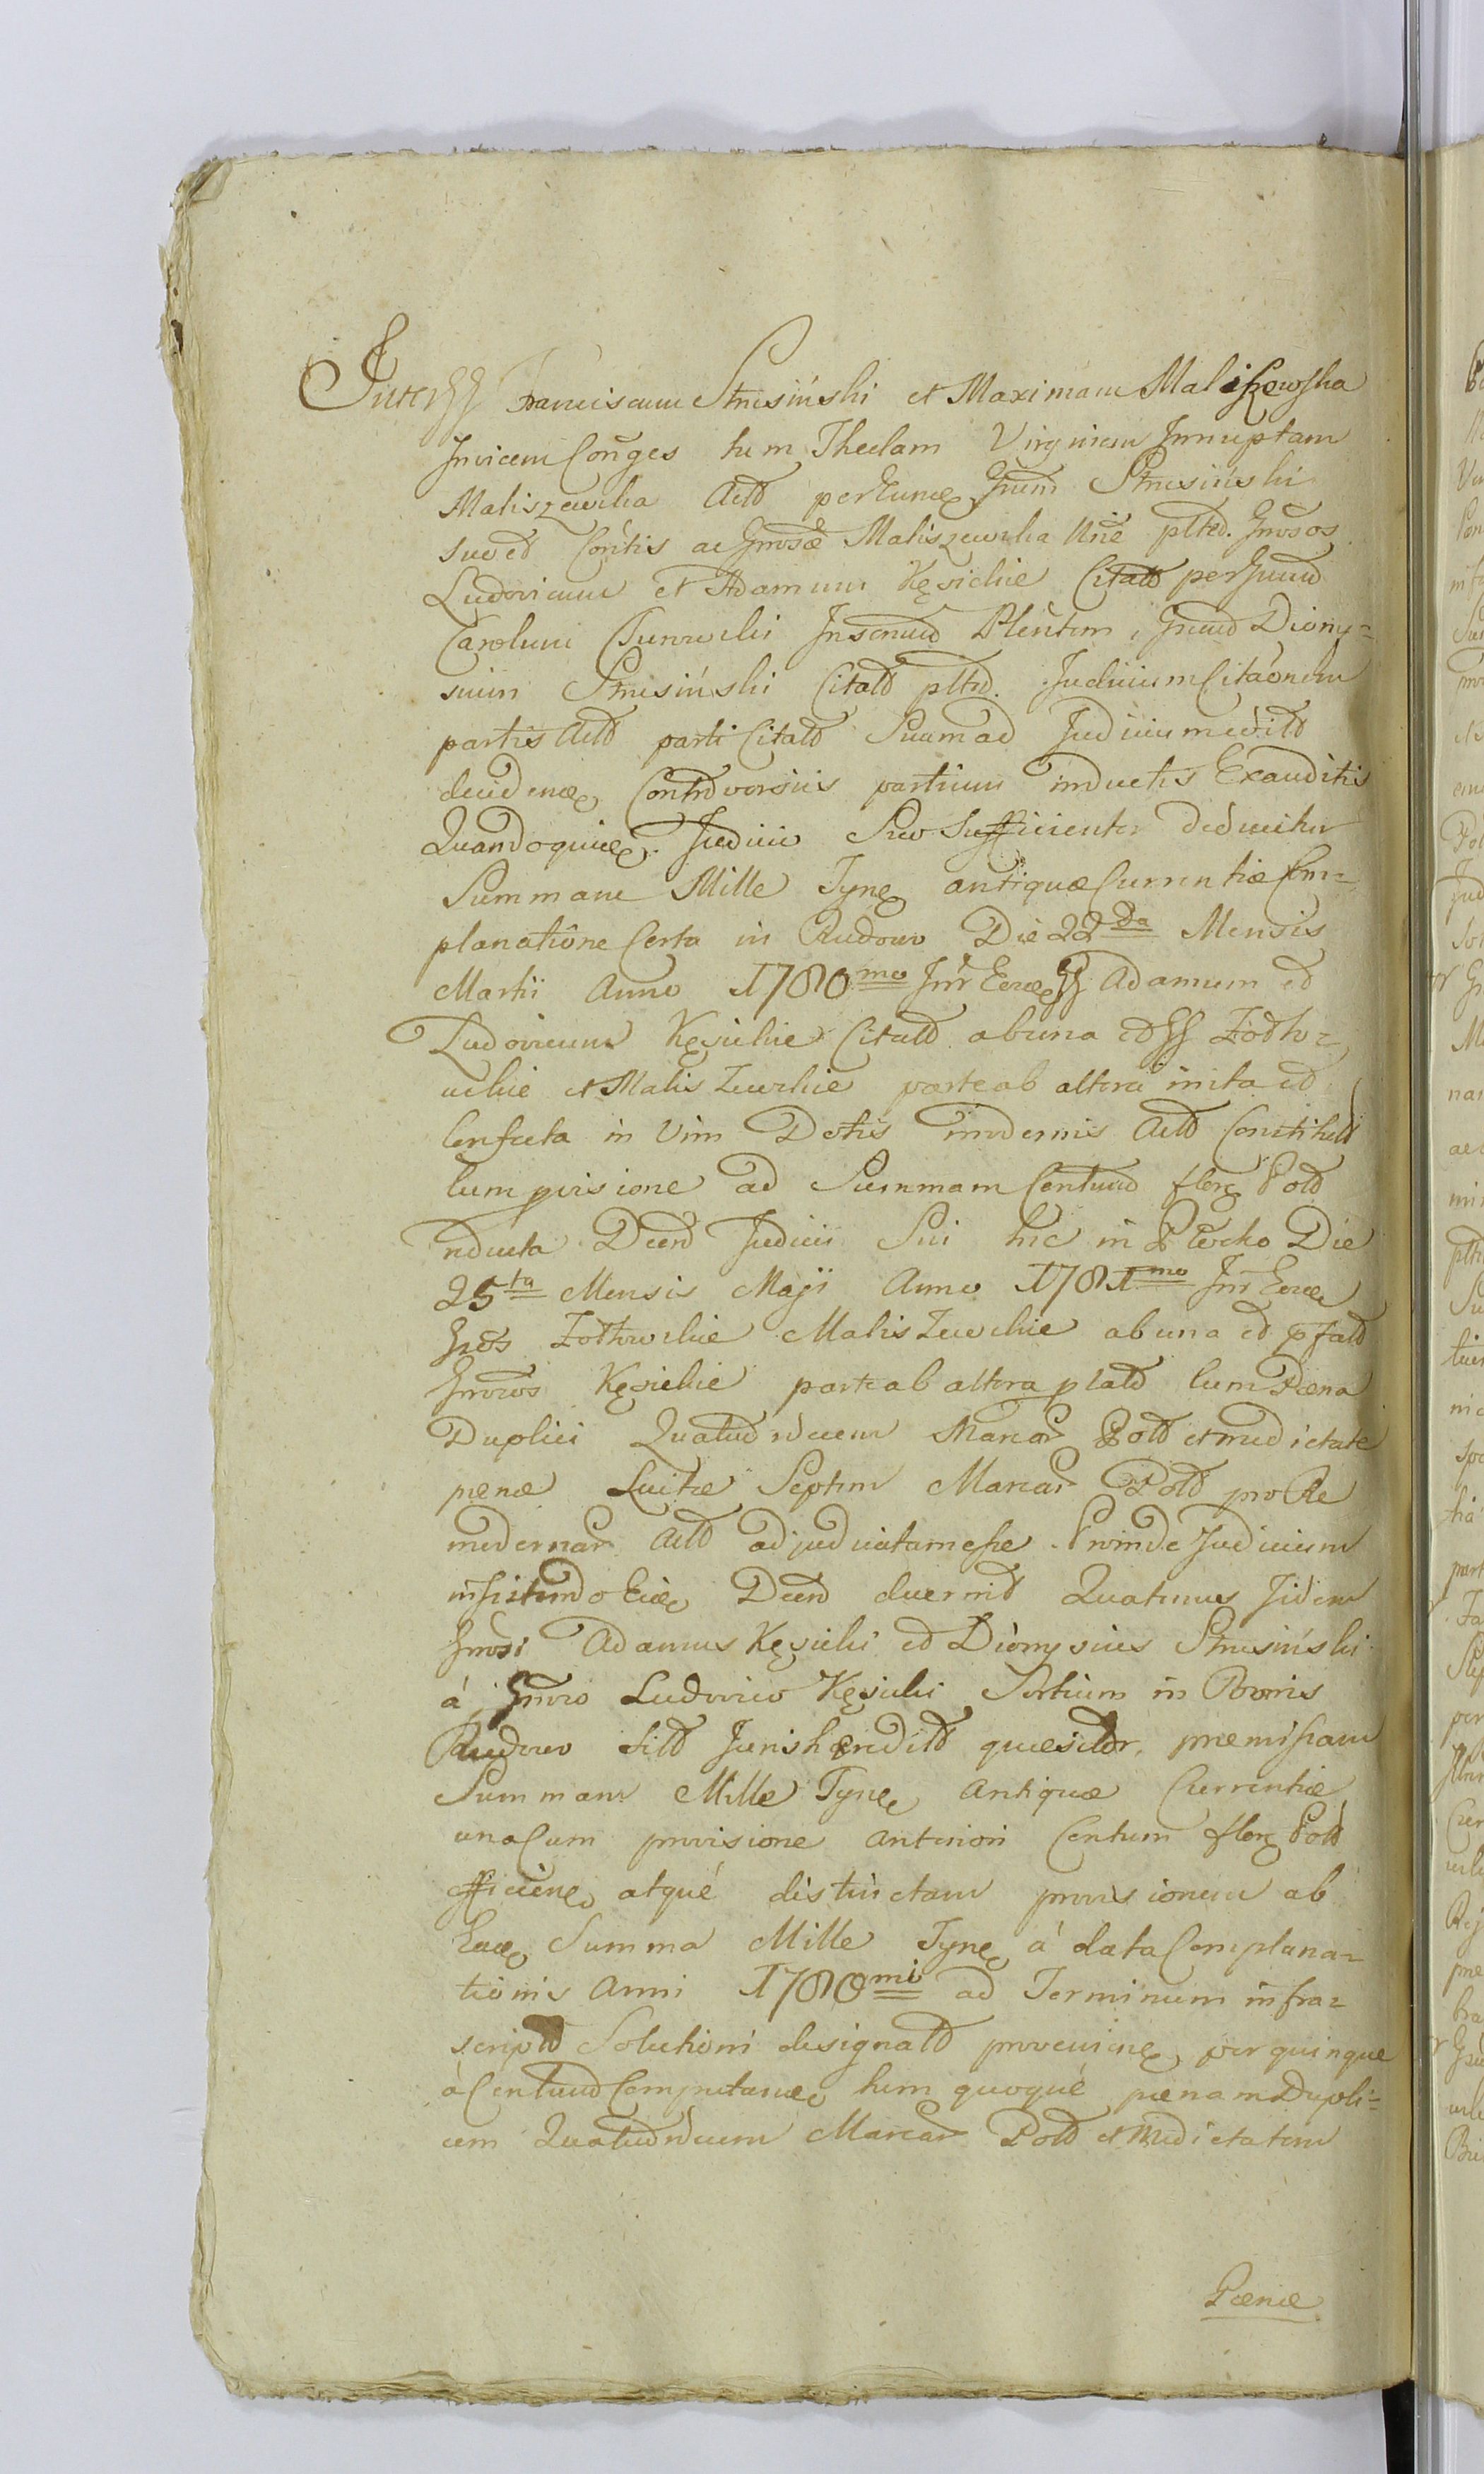 Inter GG Franciscum Strusiński et Maximam Maliszewska
Invicem Coñges tum Theclam Virginem Innuptam
Maliszewska Actt per Eund Gnūm Strusiński
suo et Coñtis ac Gnrosæ Maliszewska Nne pltrd. Gnrosos
Ludovicum et Adamum Kęsickie Citatt per Gnrum
Carolum Insernud Plentem, Gnrum Diony=
sium Strusiński Citatt pltrd. Judicium Citaõnem
partis Actt parti Citatt Suum ad Judicium édit
decidend Controversiis partium inductis Exauditis
Quandoquid Judicio Suo Sufficienter deducitur
Summam Mille Tynf antiquæ Currentiæ Com=
planatiône Certa in Rudowo Die 22da Mensis
Martii Anno 1780mo Intr Eosd GG Adamum et
Ludovicum Kęsickie Citatt ab una et GG Żółto=
wckie et Maliszewckie parte ab altera inita et
Confecta in Vim Dotis modernis Actt Constitutt
Cum provisione ad Summam Centum flor Pott
reducta Decrt Judicii Sui hic in Plocko Die
25ta Mensis Maji Anno 1781mo Intr Eosd
Gnros Żółtowckie Maliszewckie ab una et pfatt
Gnrosos Kęsickie parte ab altera platt Cum Pæna
Duplici Quatuordecem Marcar Pott et medietate
pænæ Luitæ Septem Marcar Pott pro Re
modernar Actt adjudicatam esse. Proinde Judicium
insistendo Eid Decrt decernit Quatenus Iidem
Gnrosi Adamus Kęsicki et Dionysius Strusiński
á Gnroso Ludovico Kęsicki Sortium in Bonis
Rudowo Sitt Juris hæreditt quæsitor, præmissam
Summam Mille Tynf Antiquæ Currentiæ
una Cum provisione anteriori Centum flor Pott
efficiend atqué distinctam provisionem ab
Ead Summa Mille Tynf á data Complana=
tionis Anni 1780mi ad Terminum infra=
scriptt Solutioni designatt proveniend, per quinque
á Centum Computand tum quoqué pænam Dupli=
cem Quatuordecem Marcar Pott et Medietatem
Pænæ